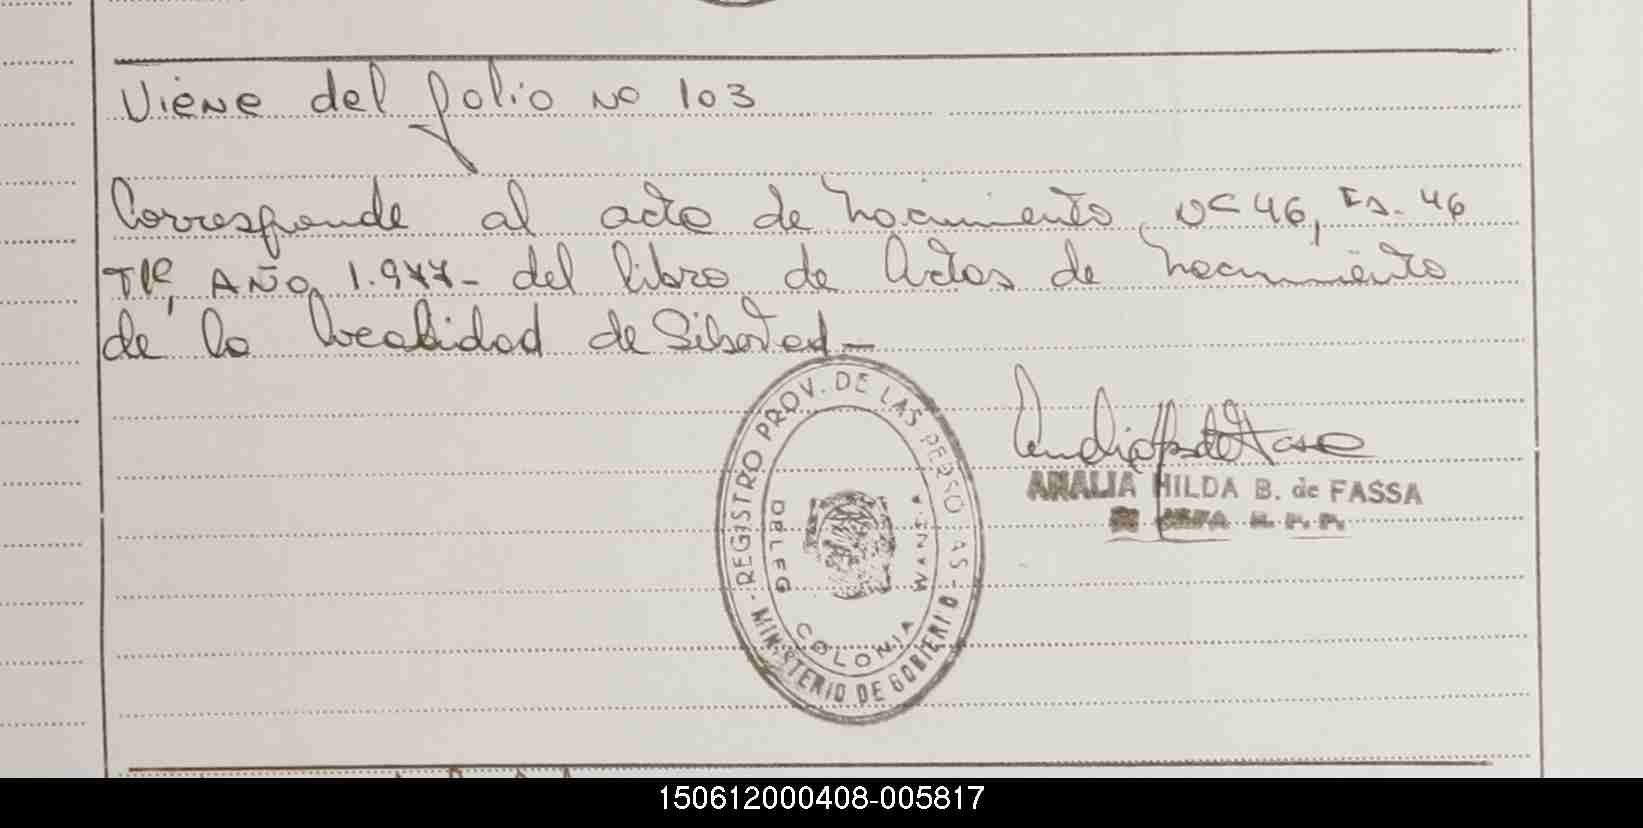 Viene del folio No 103
Corresponde al acto de nacimiento, Nº 46, Fs. 46
Tº Iº, AÑO, 1.977- del libro de Actas de nacimiento
de la localidad de Libertad-
REGISTRO PROV. DE LAS PERSONAS - MINISTERIO DE GOBIERNO -
DELEG COLONIA
ANALIA HILDA B. de FASSA
JEFA R. P. P.
150612000408-005817